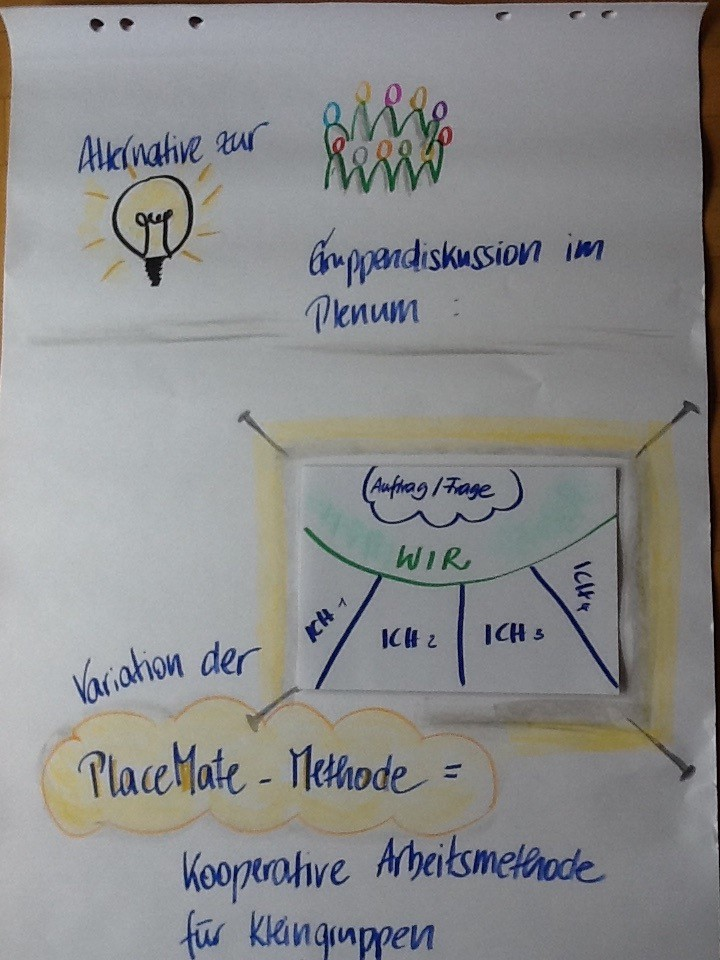 Alternative zur
Gruppendiskussion im
Plenum :
Auftrag / Frage
WIR
ICH 1
ICH 2
ICH 3
ICH 4
Variation der
PlaceMate - Methode =
Kooperative Arbeitsmethode
für Kleingruppen